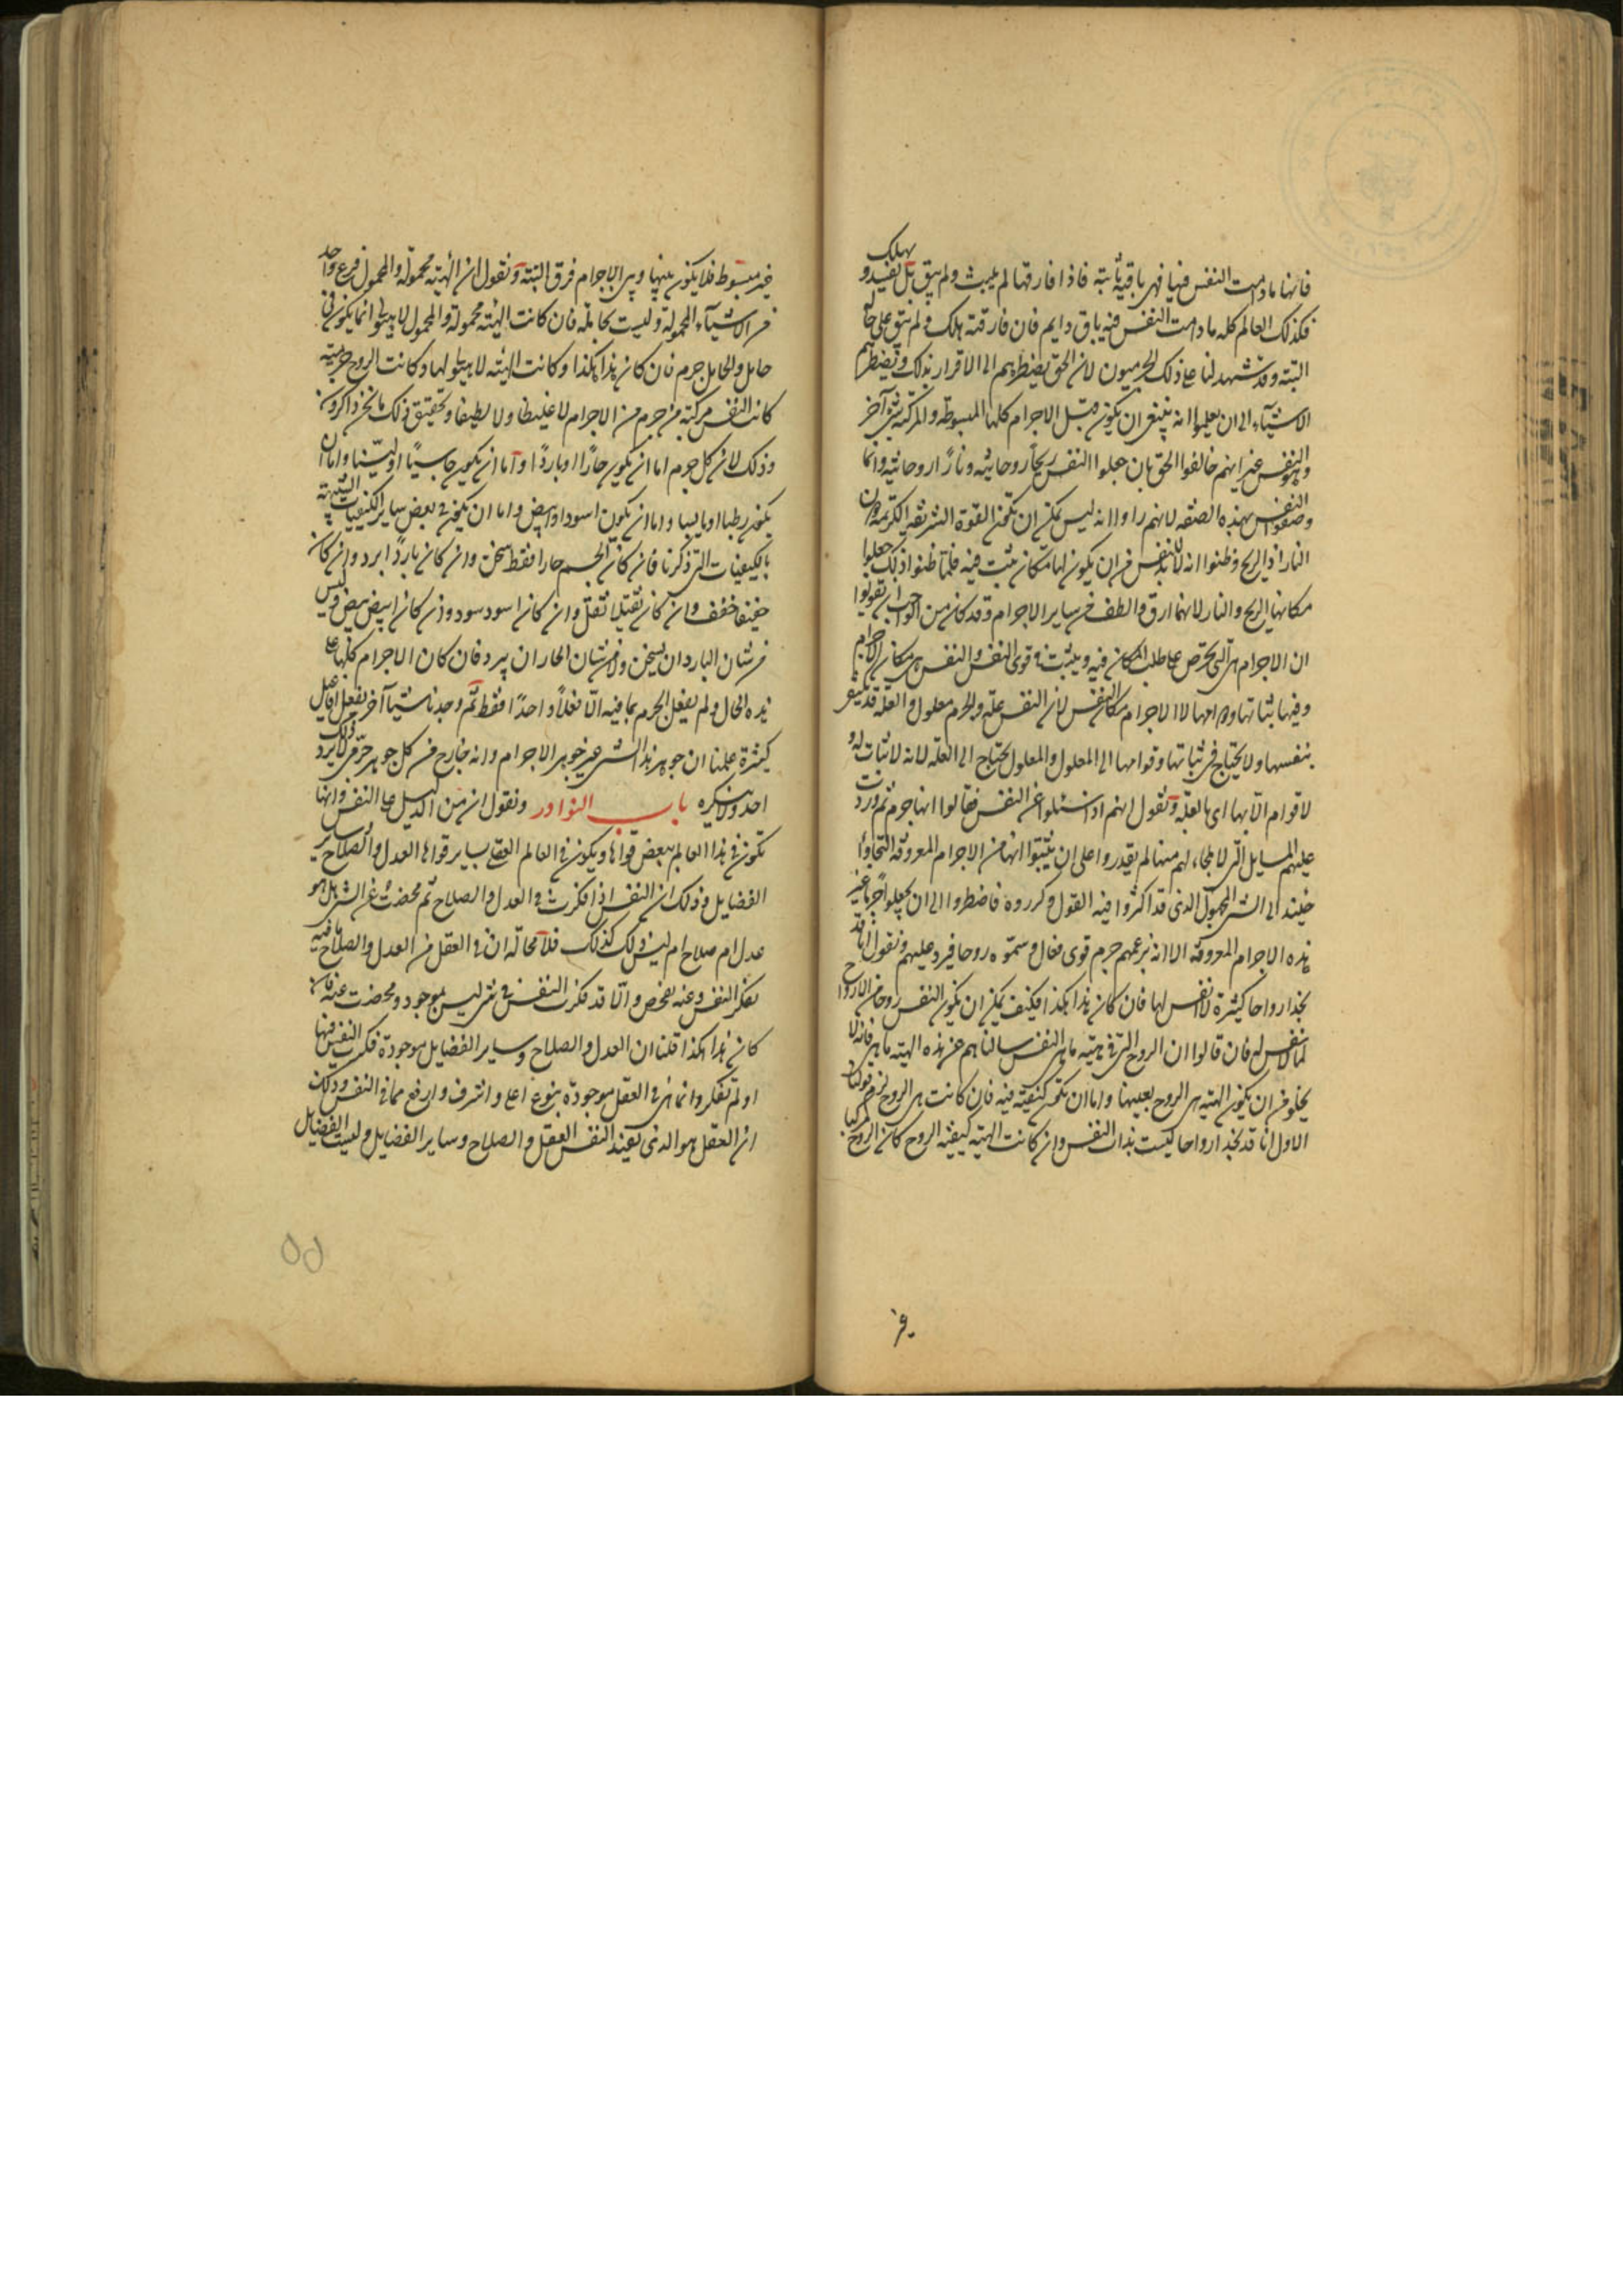 فانها مادامت النفس فيها فهي باقية ثابتة فاذا فارقها لم يلبث ولم يبق بل يفسد و يهلك
فكذلك العالم كله مادامت النفس فيه باق دايم فان فارقته هلك ولم يبق على حاله
البتة وقد شهد لنا على ذلك الجرميون لان الحق يضطرهم الى الاقرار بذلك ويضطرهم
الاشياء الى ان يعلموا انه ينبغي ان يكون قبل الاجرام كلها المبسوطة والمركبة شئ آخر
وهو النفس غير انهم خالفوا الحق بان جعلوا النفس ريحا روحانية ونارا روحانية وانما
وصفوا النفس بهذه الصفة لانهم راوا انه ليس يمكن ان تكون القوة الشريفة الكريمة دون
النار او الريح وظنوا انه لابد للنفس من ان يكون لها مكان تثبت فيه فلما ظنوا ذلك جعلوا
مكانها الريح والنار لانهما ارق والطف من ساير الاجرام وقد كان من الواجب ان يقولوا
ان الاجرام هي التي تحرص على طلب المكان فيه ويثبت في قوى النفس والنفس هي مكان الاجرام
وفيها ثباتها ودوامها لا الاجرام مكان النفس لان النفس علة والجرم معلول والعلة قد تبقى
بنفسها ولا يحتاج في ثباتها وقوامها الى المعلول والمعلول يحتاج الى العلة لانه لا ثبات له و
لا قوام الا بها اى بالعلة ونقول انهم اذا سئلوا عن النفس فقالوا انها جرم ثم وردت
عليهم المسايل التي لا ملجاء لهم منها لم يقدروا على ان يثبتوا انها من الاجرام المعروفة التجاؤا
حينئذ الى الشئ المجهول الذي قد اكثروا فيه القول وكرروه فاضطروا الى ان يجعلوا جرما غير
هذه الاجرام المعروفة الا انه بزعمهم جرم قوى فعال وسموه روحا فنرد عليهم ونقول انا قد
نجد ارواحا كثيرة لا انفس لها فان كان هذا هكذا فكيف يمكن ان يكون النفس روحا من الارواح
لما لا نفس له فان قالوا ان الروح التي في هيئة ما هي النفس سالناهم عن هذه الهيئة ما هي فانه لا
يخلو من ان يكون الهيئة هي الروح بعينها واما ان تكون كيفية فيه فان كانت هي الروح لزم قولنا
الاول انا قد نجد ارواحا ليست بذات النفس وان كانت الهيئة كيفية الروح كان الروح مركبا
غير مبسوط فلا يكون بينها وبين الاجرام فرق البتة ونقول ان الهيئة محمولة والمحمول فرع واحد
من الاشياء المحمولة وليست بحاملة فان كانت الهيئة محمولة والمحمول لا هيولى انما يكون في
حامل والحامل جرم فان كان هذا هكذا وكانت الهيئة لا هيولى لها وكانت الروح جرمية
كانت النفس مركبة من جرم من الاجرام لا غليظا ولا لطيفا وتحقيق ذلك ما نحن ذاكرون
وذلك لان كل جرم اما ان يكون حارا او باردا واما ان يكون جاسيا او لينا واما ان
يكون رطبا او يابسا واما ان يكون اسود او ابيض واما ان يكون في بعض ساير الكيفيات الشبيهة
بالكيفيات التي ذكرنا فان كان الجسم حارا فقط سخن وان كان باردا ابرد وان كان
خفيفا خفف وان كان ثقيلا ثقل وان كان اسود سود وان كان ابيض بيض وليس
من شان البارد ان يسخن ولا من شان الحار ان يبرد فان كان الاجرام كلها على
هذه الحال ولم يفعل الجرم بما فيه الا فعلا واحدا فقط ثم وجدنا شيئا آخر يفعل افاعيل
كثيرة علمنا ان جوهر هذا الشئ غير جوهر الاجرام وانه خارج من كل جوهر جرمي وذلك لا يرده
احد ولا ينكره باب النوادر ونقول ان من الدليل على النفس وانها
تكون في هذا العالم ببعض قواها ويكون في العالم العقلي بساير قواها العدل والصلاح وساير
الفضايل وذلك ان النفس اذا فكرت في العدل والصلاح ثم فحصت عن الشئ هل هو
عدل ام صلاح ام ليس ذلك كذلك فلا محالة ان في العقل من العدل والصلاح ما فيه
يفكر النفس وعنه يفحص والا قد فكرت النفس في شئ ليس بموجود وفحصت عنه فان
كان هذا هكذا قلنا ان العدل والصلاح وساير الفضايل موجودة فكرت النفس فيها
او لم تفكر وانما هي في العقل موجودة بنوع اعلى واشرف وارفع مما في النفس وذلك
ان العقل هو الذي يفيد النفس العقل والصلاح وساير الفضايل وليست الفضايل
غير